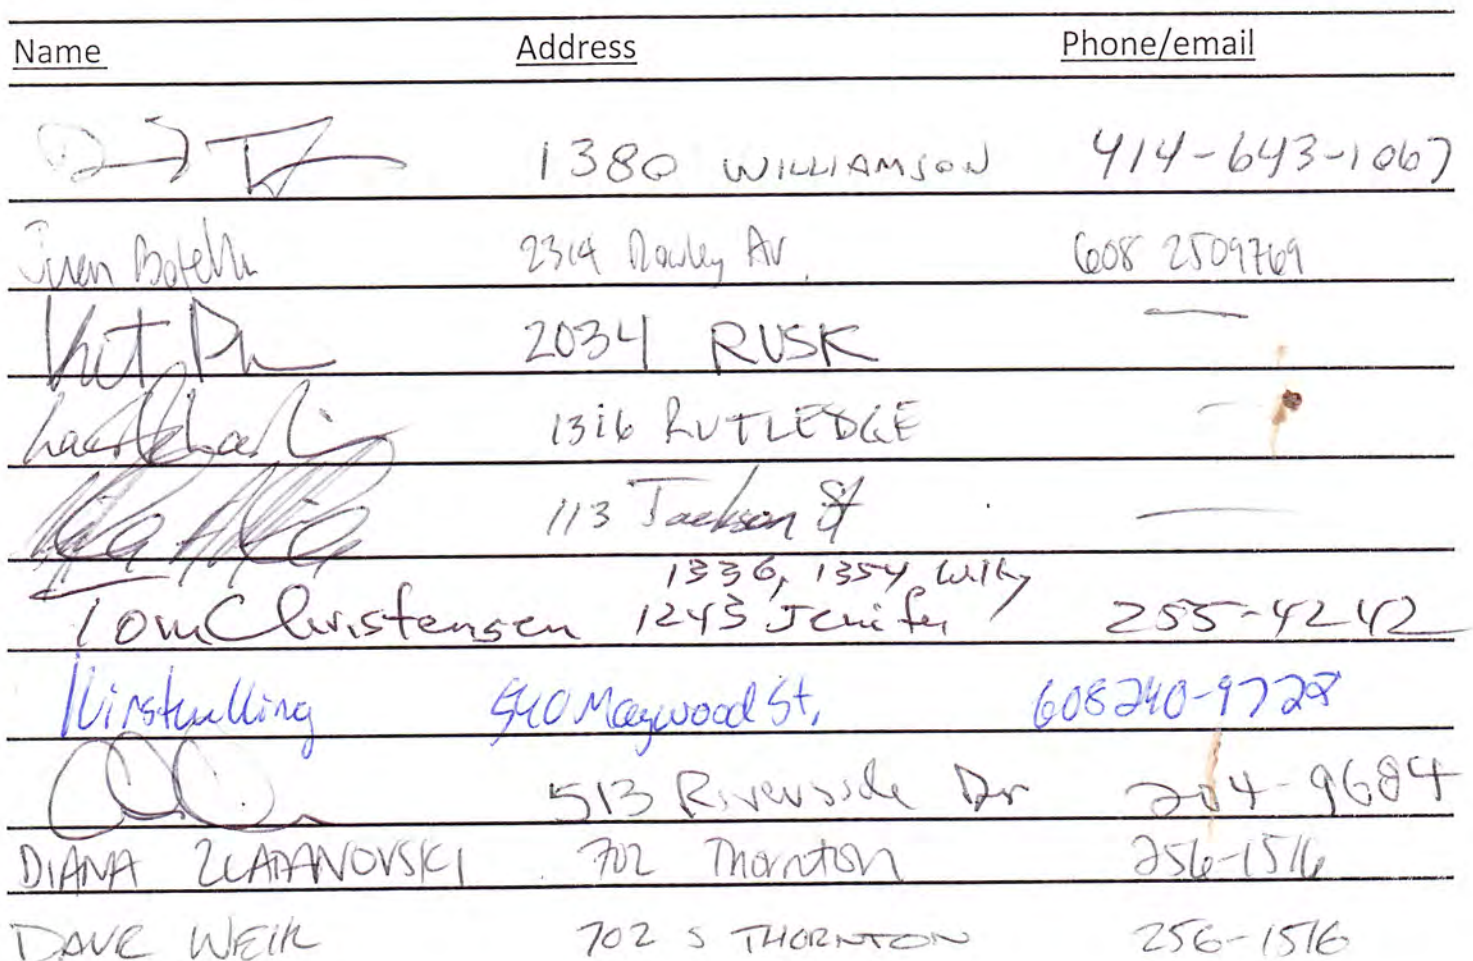 Name Address Phone/email
1380 WILLIAMSON 414-643-1067
Juan 2314 Rowley Av. 608 2509769
Kit 2034 RUSK —
1316 RUTLEDGE —
113 Jackson St —
1336, 1354 Willy
Tom Christensen 1243 Jenifer 255-4242
Kirsten King 540 Maywood St, 608 240-9728
513 Riverside Dr 204-9684
DIANA ZLATANOVSKI 702 Thornton 256-1516
DAVE WEIR 702 S THORNTON 256-1516